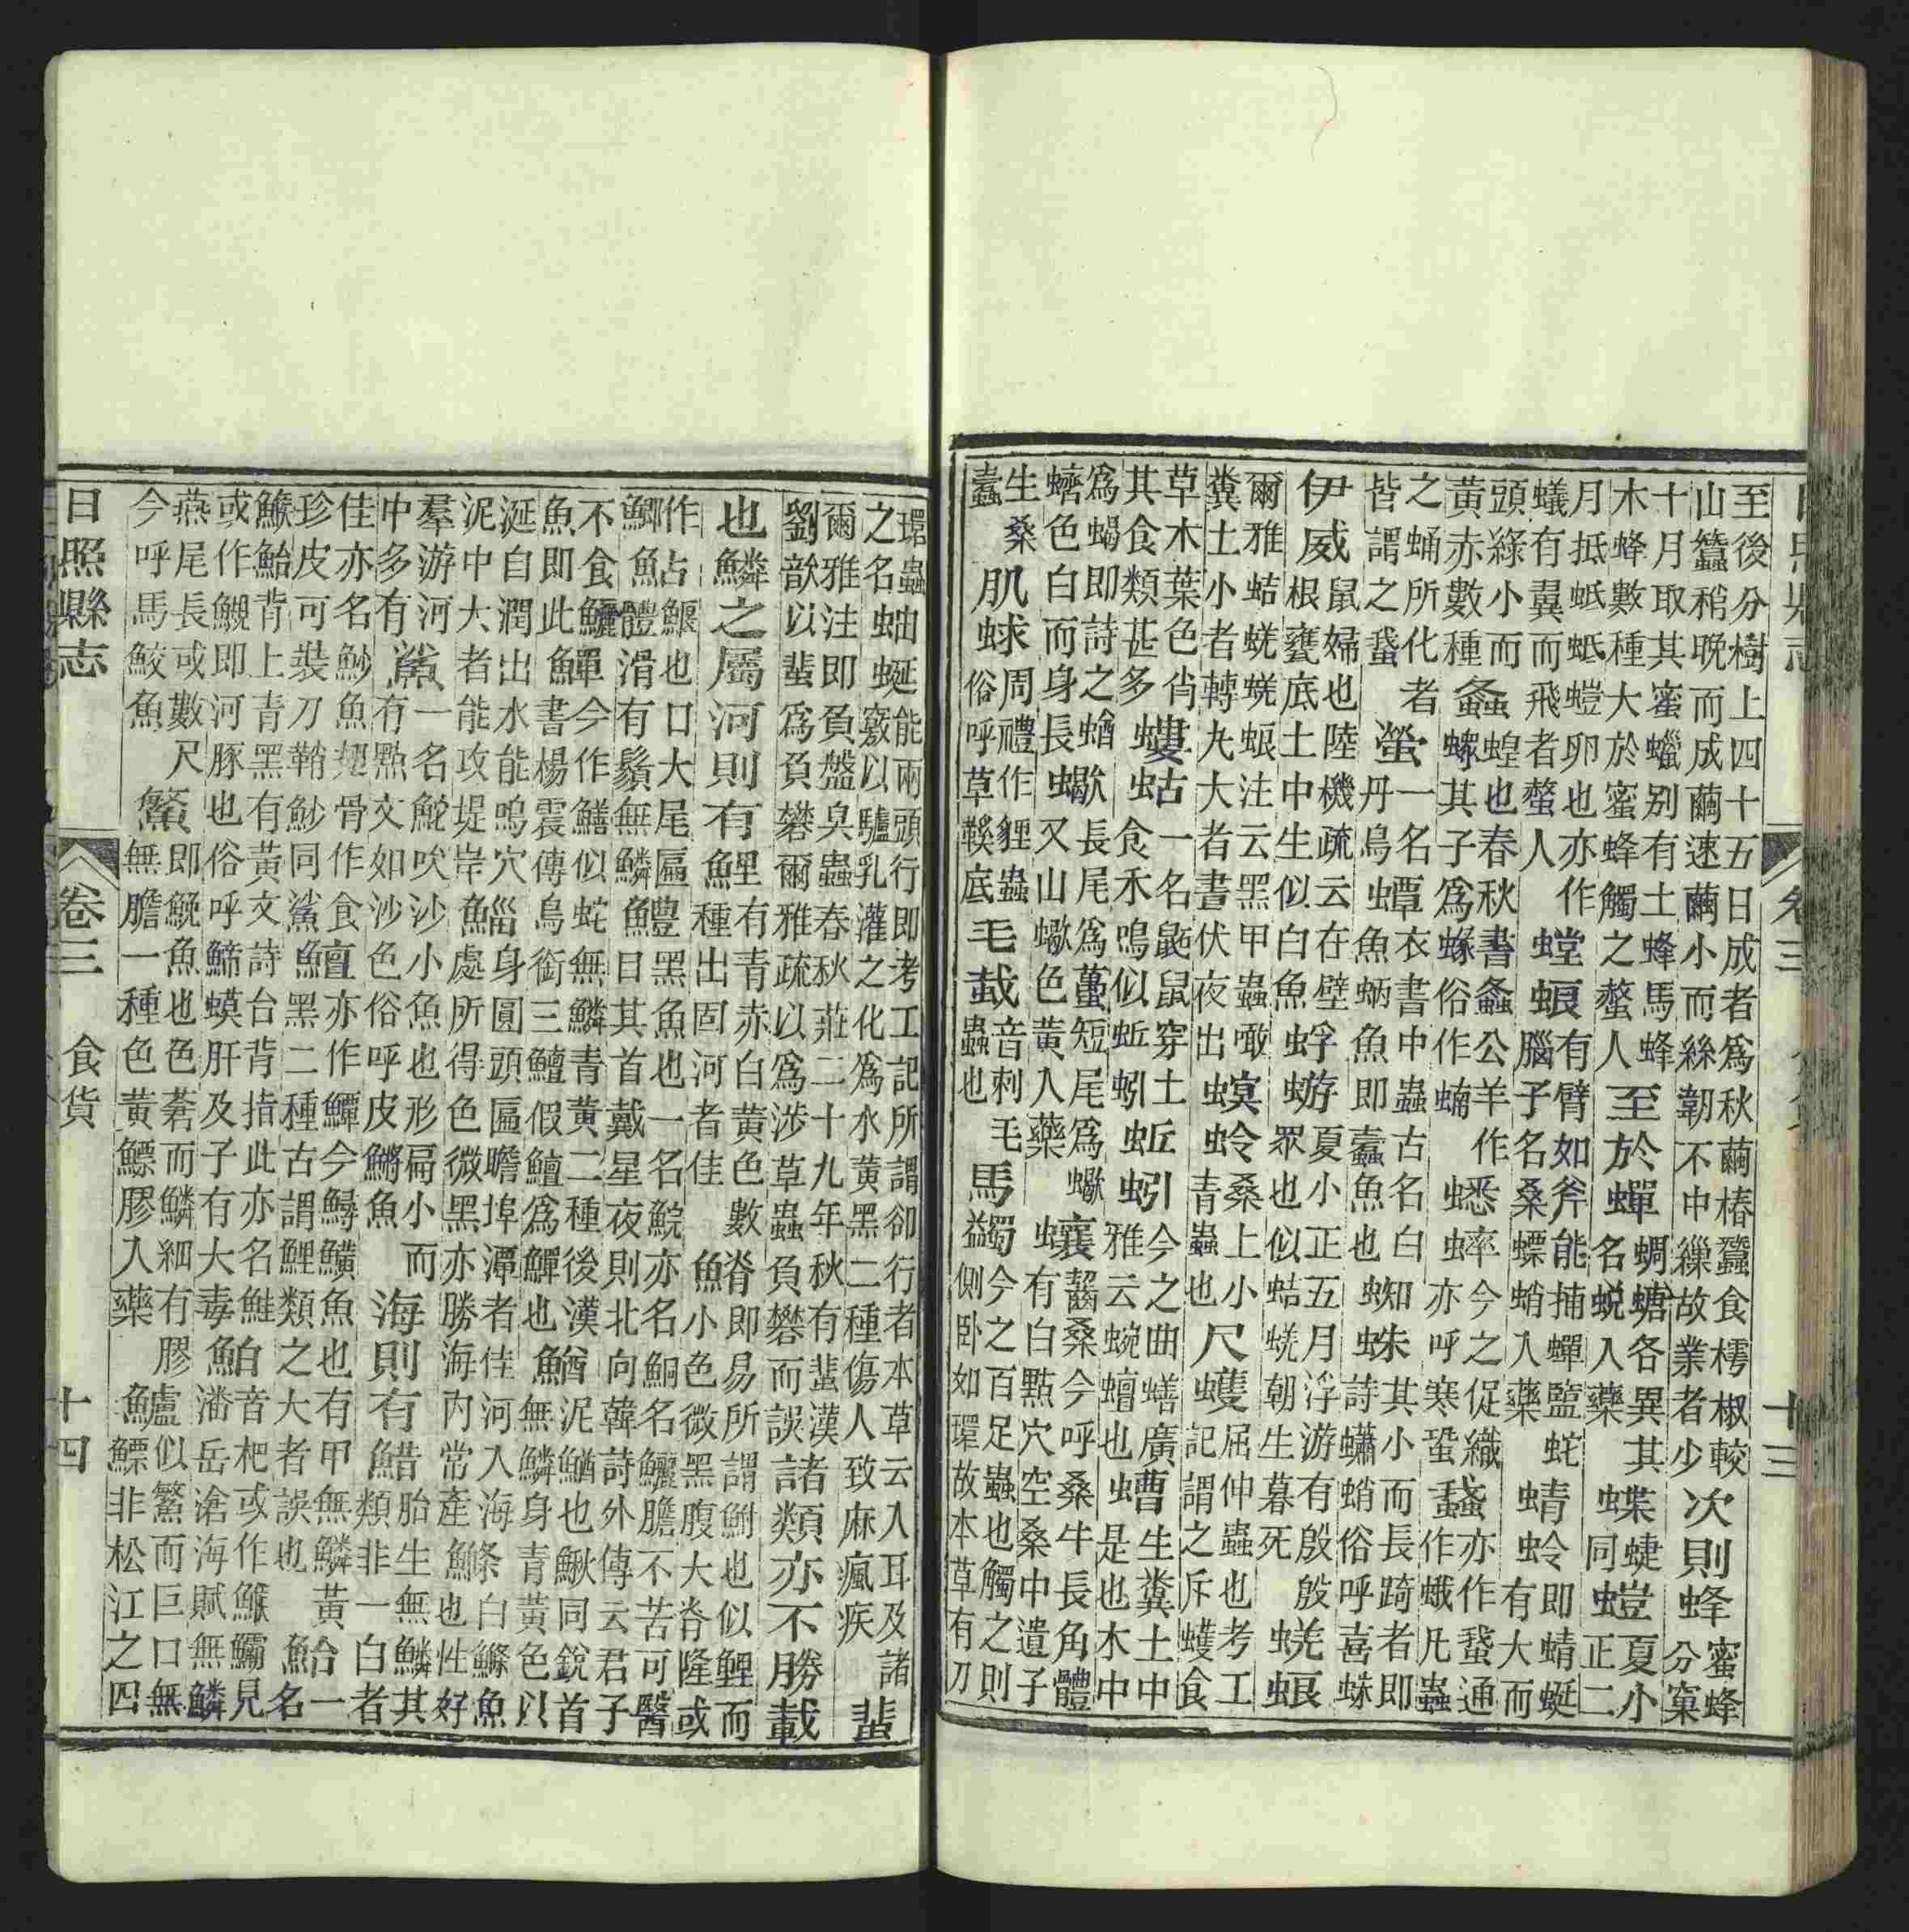 至後分樹上四十五日成者為秋繭椿蠶食樗椒較
山蠶稍晚而成繭速繭小而絲韌不中繅故業者少
次則蜂
蜜蜂
分窠
十月取其蜜蠟别有土蜂馬蜂
木蜂數種大於蜜蜂觸之螫人
至於蟬
蜩螗各異其
名蜕入藥
蝶
蜨
同
螘
夏小
正二
月抵蚳蚳螘卵也亦作
蟻有翼而飛者螫人
螳蜋
有臂如斧能捕蟬鹽蛇
腦子名桑螵蛸入藥
蜻蛉
即蜻蜓
有大而
頭綠小而
黄赤數種
螽
蝗也春秋書螽公羊作
其子為蝝俗作蝻
蟋蟀
今之促織
亦呼寒蛩
亦作蝅通
作蛾凡蟲
之蛹所化者
皆謂之蝅
螢
一名
丹鳥
蟫
衣書中蟲古名白
魚蛃魚即蠹魚也
蜘蛛
其小而長踦者即
詩蠨蛸俗呼喜蛛
伊威
鼠婦也陸機疏云在壁
根甕底土中生似白魚
蜉蝣
夏小正五月浮游有殷殷
眾也似蛣蜣朝生暮死
蜣蜋
爾雅蛣蜣蜣蜋注云黑甲蟲噉
糞土小者轉丸大者晝伏夜出
螟蛉
桑上小
青蟲也
尺蠖
屈伸蟲也考工
記謂之斥蠖食
草木葉色肖
其食類甚多
螻蛄
一名鼫鼠穿土
食禾鳴似蚯蚓
蚯蚓
今之曲蟮廣
雅云蜿蟺也
螬
生糞土中
是也木中
為蝎即詩之蝤
蠐色白而身長
蠍
長尾為蠆短尾為蠍
又山蠍色黄入藥
蠰
齧桑今呼桑牛長角體
有白點穴空桑中遺子
生桑
蠹
肌蛷
周禮作貍蟲
俗呼草鞵底
毛蛓
音刺毛
蟲也
馬蠲
今之百足蟲也觸之則
側卧如環故本草有刀
環蟲
之名
蚰蜒
能兩頭行即考工記所謂卻行者本草云入耳及諸
竅以驢乳灌之化為水黄黑二種傷人致麻瘋疾
蜚
爾雅注即負盤臭蟲春秋莊二十九年秋有蜚漢
劉歆以蜚為負礬爾雅疏以為涉草蟲負礬而誤
諸類亦不勝載
也鱗之屬河則有鯉
有青赤白黄色數
種出固河者佳
鰿
即易所謂鮒也似鯉而
小色微黑腹大脊隆或
作
鯽
鮎
鰋也口大尾匾
體滑有鬚無鱗
鱧
黑魚也一名鯇亦名鮦名鱺膽不苦可醫
目其首戴星夜則北向韓詩外傳云君子
不食鱺
魚即此
鱓
今作鱔似蛇無鱗青黄二種後漢
書楊震傳鳥銜三鱣假鱣為鱓也
鰌
泥鰌也鰍同銳首
無鱗身青黄色以
涎自潤出水能鳴穴
泥中大者能攻堤岸
鯔
身圓頭匾瞻埠潭者佳河入海
處所得色微黑亦勝海内常產
鰷
白鰷魚
也性好
羣游河
中多有
鯊
一名鮀吹沙小魚也形扁小而
有點文如沙色俗呼皮魚
海則有䱜
胎生無鱗其
類非一白者
佳亦名魦魚翅骨作食
珍皮可裝刀鞘魦同鯊
鱣
亦作鱓今鱘鱑魚也有甲無鱗黄
黑二種古謂鯉類之大者誤也
鮐
一
名
鯸鮐背上青黑有黄文詩台背指此亦名鮭
或作即河豚也俗呼蟆肝及子有大毒
鮊
音杷或作鱅見
潘岳滄海賦無鱗
燕尾長或數尺
今呼馬鮫魚
鰵
即鮸魚也色蒼而鱗細有膠
無膽一種色黄鰾膠入藥
鱸
似鰵而巨口無
鰾非松江之四
日照縣志 卷三 食貨 十四